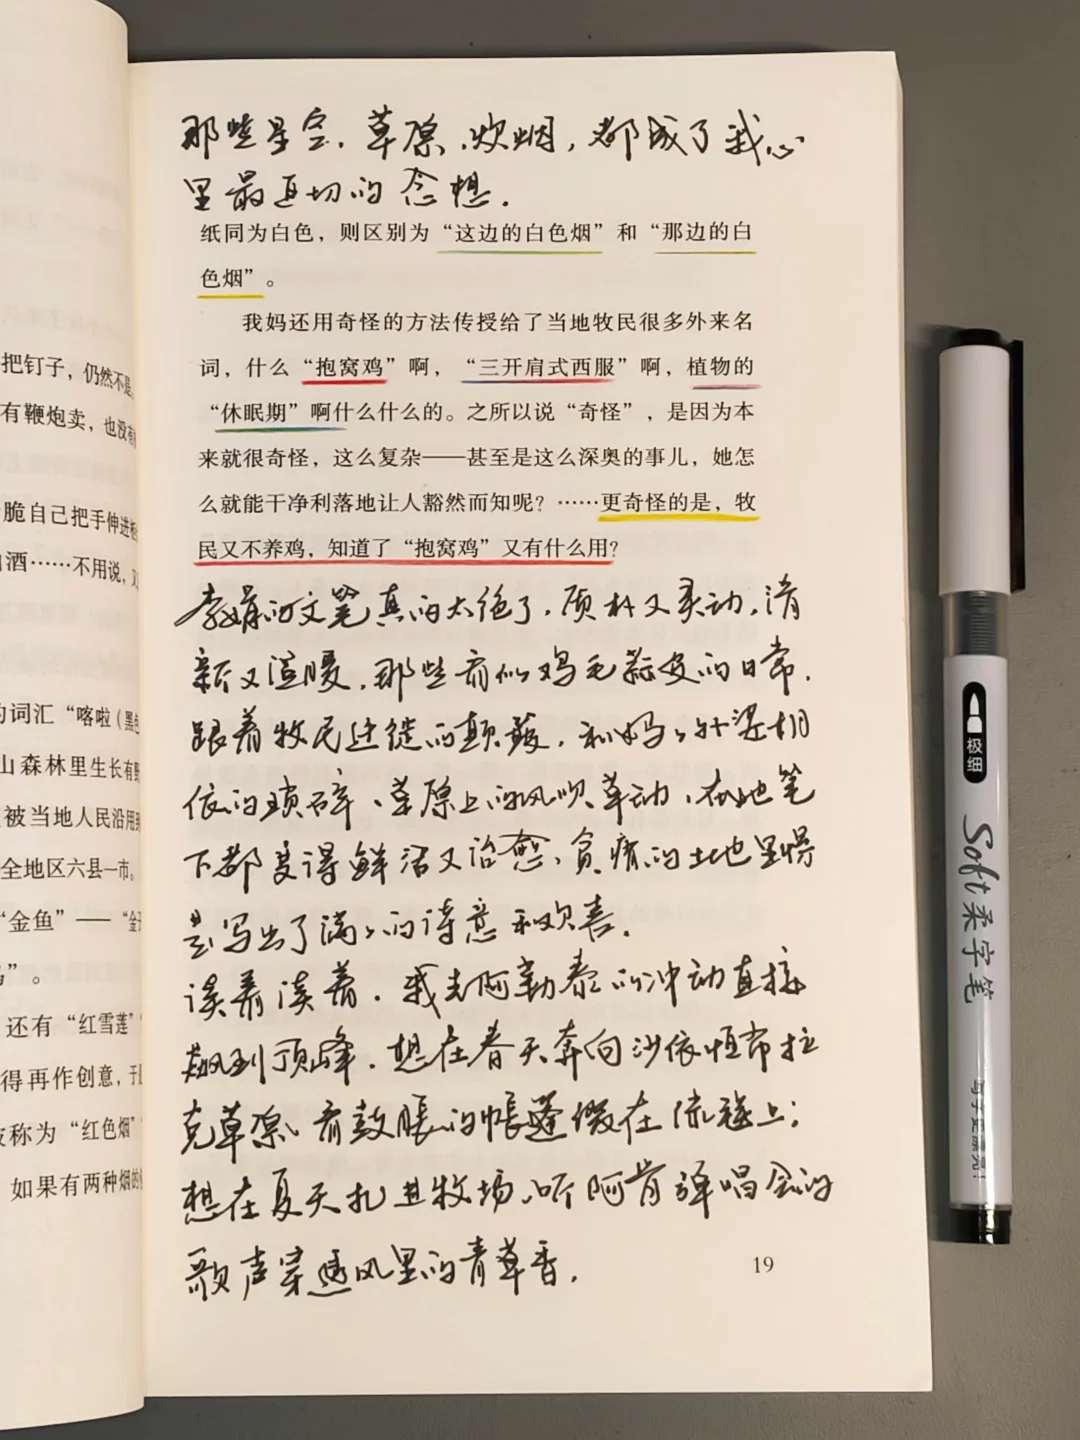 把钉子，仍然不是
有鞭炮卖，也没有
脆自己把手伸进
酒……不用说，又
的词汇“喀啦（黑色
山森林里生长有野
被当地人民沿用到
全地区六县一市。
“金鱼”——“金
”。
还有“红雪莲”
得再作创意，于
被称为“红色烟”
如果有两种烟的
那些星空、草原、炊烟，都成了我心
里最真切的念想。
纸同为白色，则区别为“这边的白色烟”和“那边的白
色烟”。
我妈还用奇怪的方法传授给了当地牧民很多外来名
词，什么“抱窝鸡”啊，“三开肩式西服”啊，植物的
“休眠期”啊什么什么的。之所以说“奇怪”，是因为本
来就很奇怪，这么复杂——甚至是这么深奥的事儿，她怎
么就能干净利落地让人豁然而知呢？……更奇怪的是，牧
民又不养鸡，知道了“抱窝鸡”又有什么用？
李娟的文笔真的太绝了，质朴又灵动，清
新又温暖，那些看似鸡毛蒜皮的日常，
跟着牧民迁徙的颠簸，和妈妈外婆相
依的琐碎、草原上的风吹草动，在她笔
下都变得鲜活又治愈，贫瘠的土地里愣
是写出了满满的诗意和欢喜。
读着读着，我去阿勒泰的冲动直接
飙到顶峰，想在春天奔向沙依恒布拉
克草原，看鼓胀的帐篷缀在流域上；
想在夏天扎进牧场，听阿肯弹唱会的
歌声穿透风里的青草香。
19
极细
Soft柔字笔
写字更漂亮！